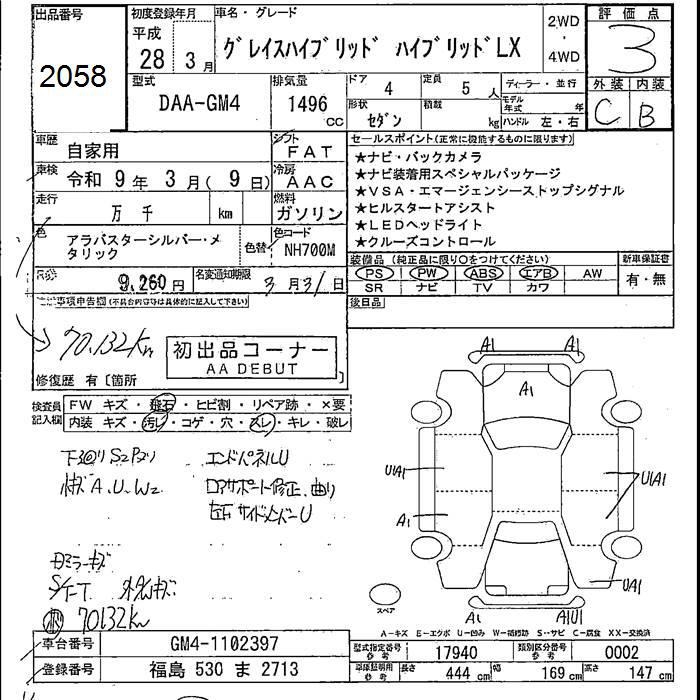 出品番号
2058
初度登録年月
平成
28 年 3 月
車名・グレード
グレイスハイブリッド ハイブリッドLX
2WD
・
4WD
評価点
3
外装 内装
C B
型式
DAA-GM4
排気量
1496 cc
ドア 4
定員 5 人
形状 セダン
積載 kg
ディーラー・並行
モデル年式 年
ハンドル 左・右
車歴 自家用
シフト FAT
車検 令和 9 年 3 月 ( 9 日)
冷房 AAC
走行 万 千 km
燃料 ガソリン
色 アラバスターシルバー・メタリック
色替
色コード NH700M
9,260 円
名変通知期限 3 月 31 日
セールスポイント(正常に機能するものに限ります)
★ナビ・バックカメラ
★ナビ装着用スペシャルパッケージ
★VSA・エマージェンシーストップシグナル
★ヒルスタートアシスト
★LEDヘッドライト
★クルーズコントロール
装備品 (純正品に限り〇をつけてください)
新車保証書
PS PW ABS エアB AW
SR ナビ TV カワ
有・無
後日品
事項申告欄(不具合内容等は具体的に記入して下さい)
70,132km
初出品コーナー
AA DEBUT
修復歴 有〔箇所
検査員記入欄
FW キズ・飛石・ヒビ割・リペア跡・×要
内装 キズ・汚れ・コゲ・穴・スレ・キレ・破レ
下回り S2 P2り
エンドパネルU
キズ A、U、W2
コアサポート修正、曲り
左右 サイドメンバーU
ミラーキズ
70132km
A1 A1
A1
UA1
UA1
A1
UA1
A1 A1U1
スペア
A-キズ E-エクボ U-凹み W-補修跡 S-サビ C-腐食 XX-交換済
車台番号 GM4-1102397
登録番号 福島 530 ま 2713
型式指定番号 参考 17940
類別区分番号 参考 0002
車庫証明用 参考 長さ 444 cm 幅 169 cm 高さ 147 cm